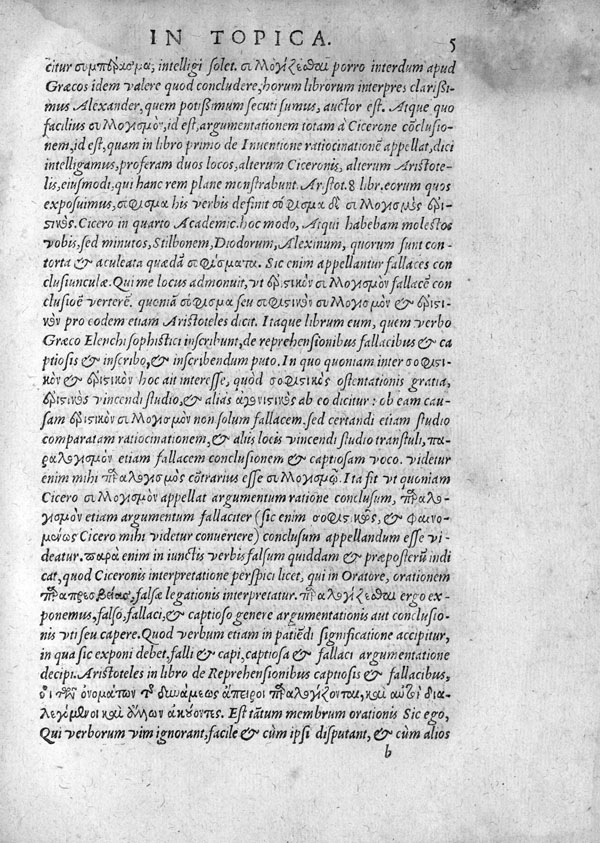 IN TOPICA. 5
citur συμπέρασμα, intelligi solet. συλλογίζεσθαι porro interdum apud
Græcos idem valere quod concludere, horum librorum interpres clarißi-
mus Alexander, quem potißimum secuti sumus, auctor est. Atque quo
facilius συλλογισμὸν, id est, argumentationem totam à Cicerone cōclusio-
nem, id est, quam in libro primo de Inventione ratiocinationē appellat, dici
intelligamus, proferam duos locos, alterum Ciceronis, alterum Aristote-
lis, eiusmodi, qui hanc rem plane monstrabunt. Aristot. 8 libr. eorum quos
exposuimus, σόφισμα his verbis definit σόφισμα δὲ συλλογισμὸς ἐρι-
στικὸς. Cicero in quarto Academic. hoc modo, Atqui habebam molestos
vobis, sed minutos, Stilbonem, Diodorum, Alexinum, quorum sunt con-
torta & aculeata quædā σοφίσματα. Sic enim appellantur fallaces con
clusiunculæ. Qui me locus admonuit, vt ἐριστικὸν συλλογισμὸν fallacē con
clusionē verterē. quoniā σόφισμα seu σοφιστικὸν συλλογισμὸν & ἐριστι-
κὸν pro eodem etiam Aristoteles dicit. Itaque librum eum, quem verbo
Græco Elenchi sophistici inscribunt, de reprehensionibus fallacibus & ca
ptiosis & inscribo, & inscribendum puto. In quo quoniam inter σοφιστι-
κὸν & ἐριστικὸν hoc ait interesse, quòd σοφιστικὸς ostentationis gratia,
ἐριστικὸς vincendi studio, & alias ἀγωνιστικὸς ab eo dicitur: ob eam cau-
sam ἐριστικὸν συλλογισμὸν non solum fallacem, sed certandi etiam studio
comparatam ratiocinationem, & aliis locis vincendi studio transtuli, πα-
ραλογισμὸν etiam fallacem conclusionem & captiosam voco. videtur
enim mihi παραλογισμὸς cōtrarius esse συλλογισμῷ. Ita fit vt quoniam
Cicero συλλογισμὸν appellat argumentum ratione conclusum, παραλο-
γισμὸν etiam argumentum fallaciter (sic enim σοφιστικῶς, & φαινο-
μένως Cicero mihi videtur convertere) conclusum appellandum esse vi-
deatur. παρὰ enim in iunctis verbis falsum quiddam & præposterū indi
cat, quod Ciceronis interpretatione perspici licet, qui in Oratore, orationem
παραπρεσβείας, falsæ legationis interpretatur. παραλογίζεσθαι ergo ex-
ponemus, falso, fallaci, & captioso genere argumentationis aut conclusio-
nis vti seu capere. Quod verbum etiam in patiēdi significatione accipitur,
in qua sic exponi debet, falli & capi, captiosa & fallaci argumentatione
decipi. Aristoteles in libro de Reprehensionibus captiosis & fallacibus,
οἱ τῶν ὀνομάτων τῆς δυνάμεως ἄπειροι παραλογίζονται, καὶ αὐτοὶ δια-
λεγόμενοι καὶ ἄλλων ἀκούοντες. Est tātum membrum orationis Sic ego,
Qui verborum vim ignorant, facile & cùm ipsi disputant, & cùm alios
b